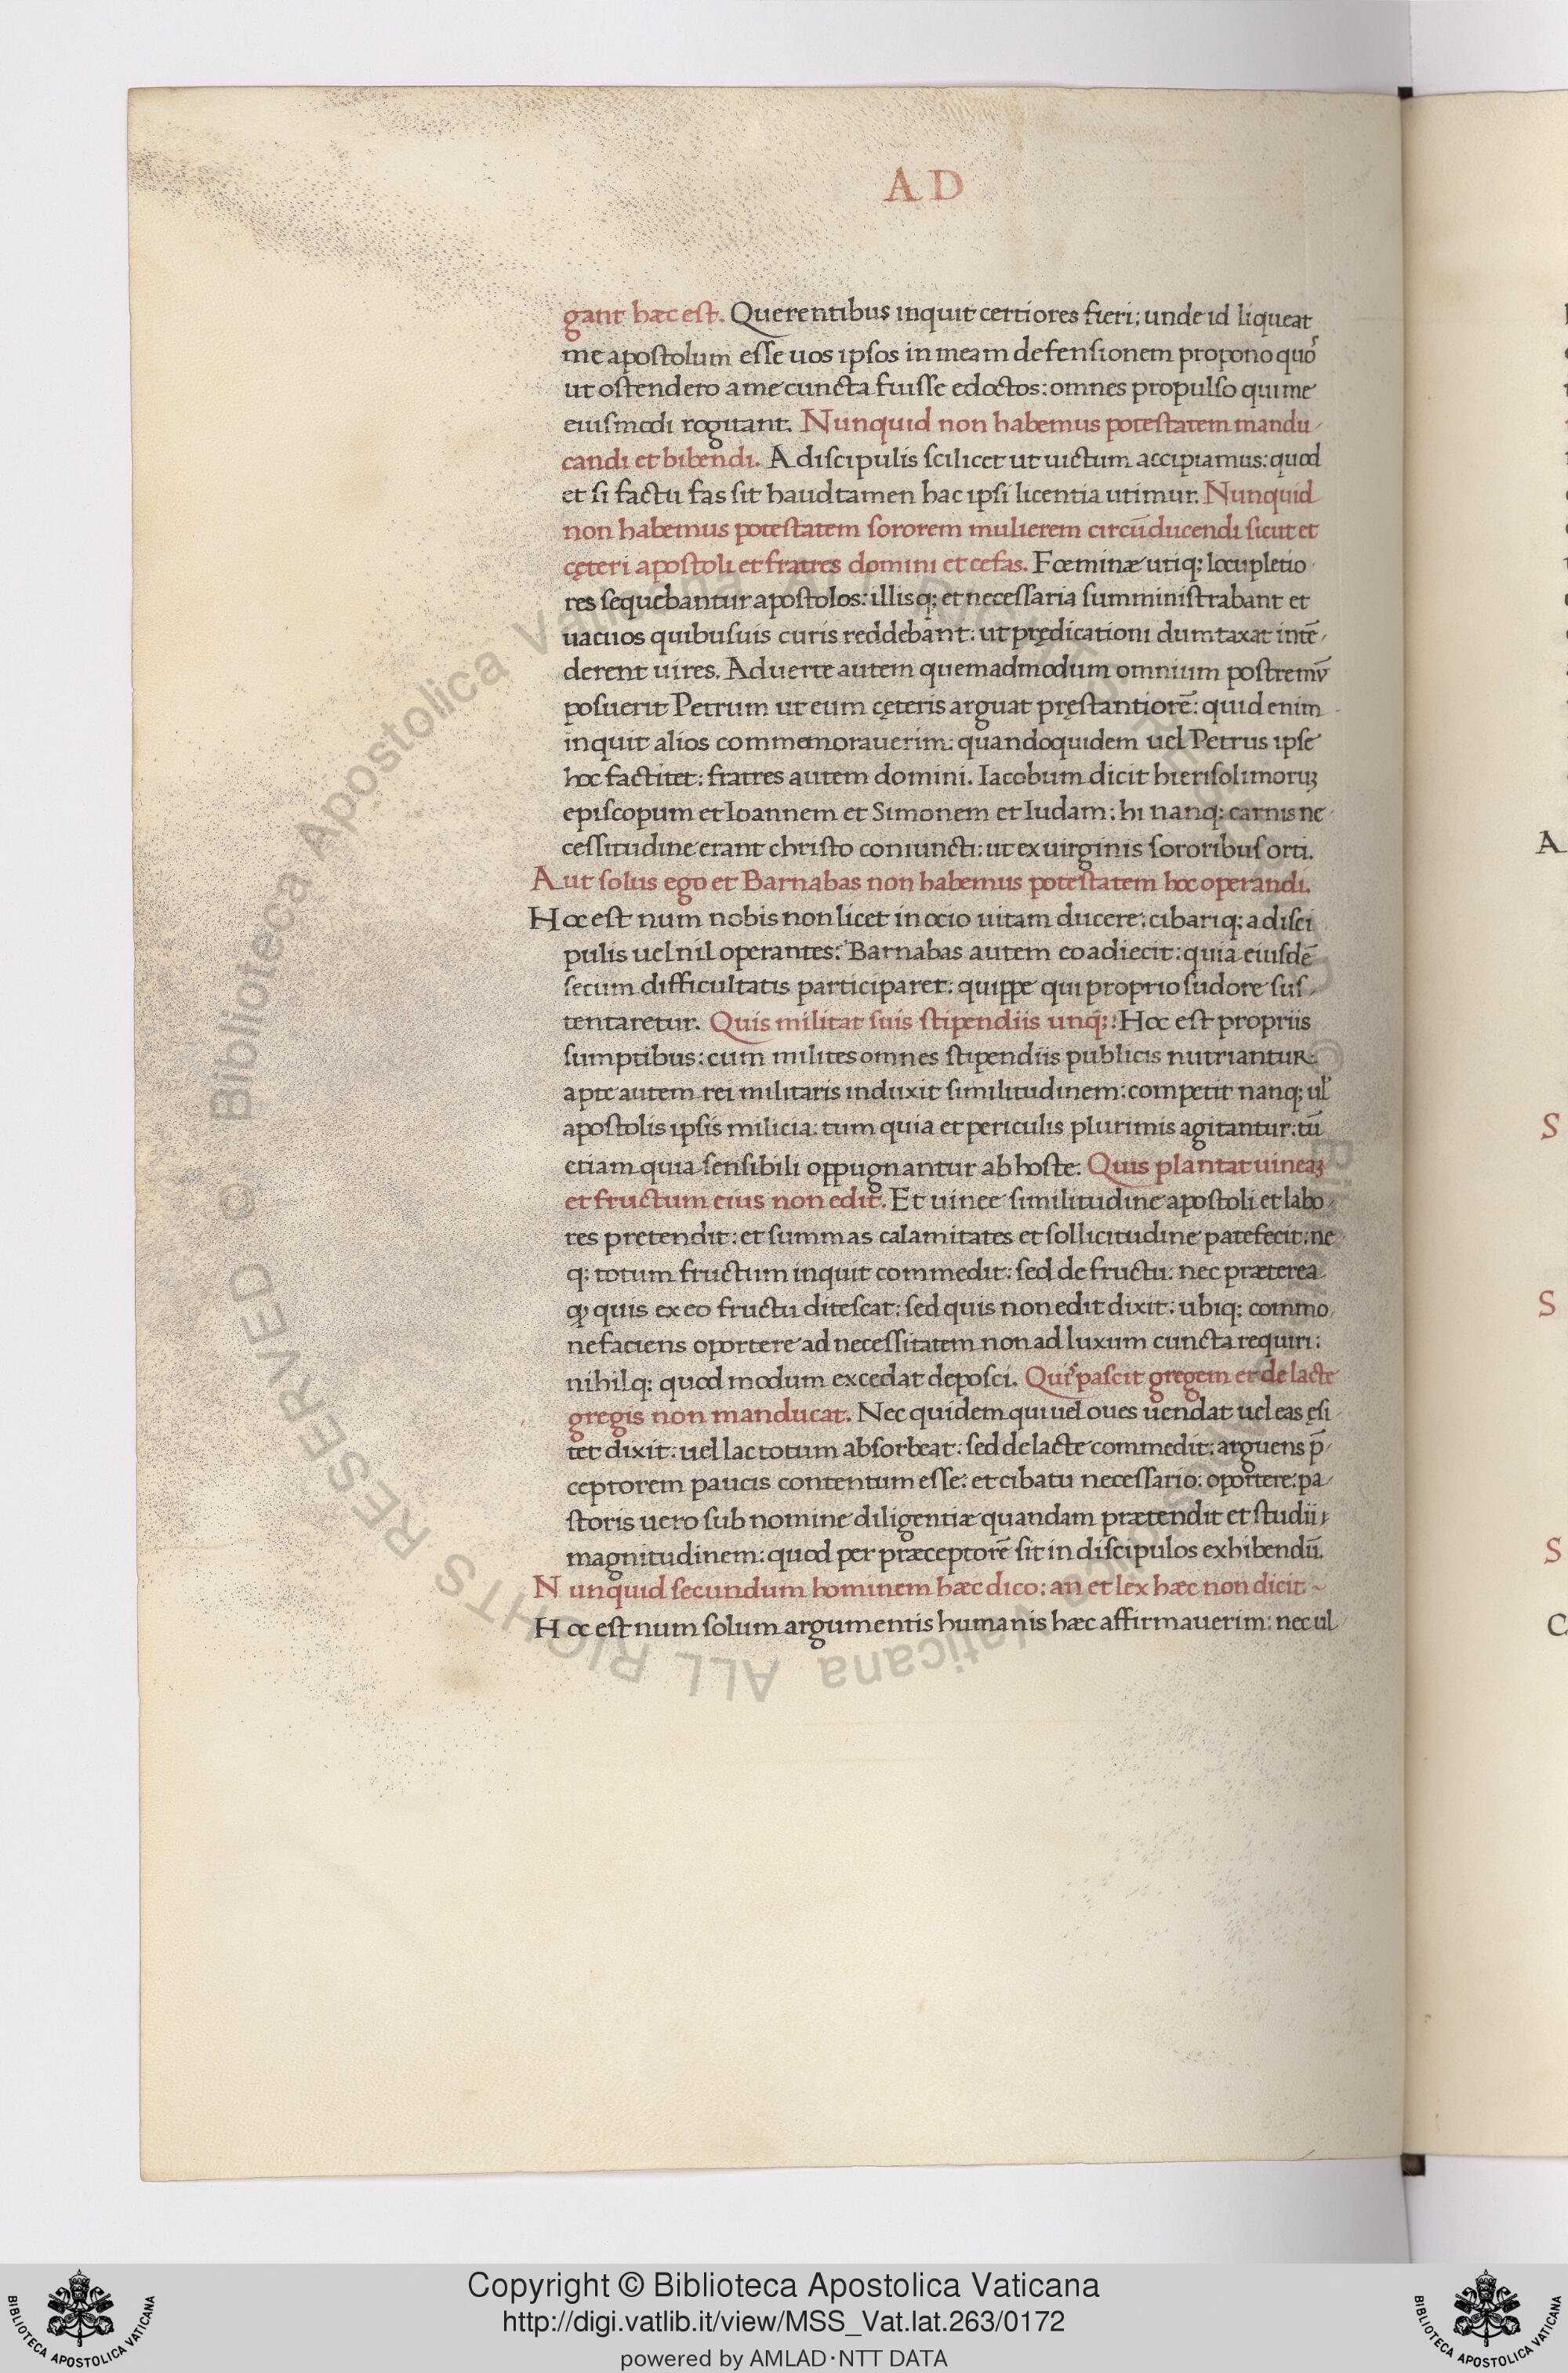 AD
gant hæc est. Querentibus inquit certiores fieri; unde id liqueat
me apostolum esse uos ipsos in meam defensionem propono quo
ut ostendero a me cuncta fuisse edoctos: omnes propulso qui me
eiusmodi rogitant. Nunquid non habemus potestatem mandu
candi et bibendi. A discipulis scilicet ut uictum accipiamus: quod
et si factu fas sit haud tamen hac ipsi licentia utimur. Nunquid
non habemus potestatem sororem mulierem circūducendi sicut et
cęteri apostoli et fratres domini et cefas. Fœminæ utiq; locupletio
res sequebantur apostolos: illisq; et necessaria sumministrabant et
uacuos quibusuis curis reddebant: ut prędicationi dumtaxat intē
derent uires. Aduerte autem quemadmodum omnium postremū
posuerit Petrum ut eum cęteris arguat pręstantiorē: quid enim
inquit alios commemorauerim: quandoquidem uel Petrus ipse
hoc factitet: fratres autem domini. Iacobum dicit hierisolimoruꝫ
episcopum et Ioannem et Simonem et Iudam: hi nanq; carnis ne
cessitudine erant christo coniuncti: ut ex uirginis sororibus orti.
Aut solus ego et Barnabas non habemus potestatem hoc operandi.
Hoc est num nobis non licet in ocio uitam ducere; cibariq; a disci
pulis uel nil operantes: Barnabas autem eo adiecit: quia eiusdē
secum difficultatis participaret: quippe qui proprio sudore sus
tentaretur. Quis militat suis stipendiis unq̄;: Hoc est propriis
sumptibus: cum milites omnes stipendiis publicis nutriantur:
apte autem rei militaris induxit similitudinem: competit nanq; ul̓
apostolis ipsis milicia: tum quia et periculis plurimis agitantur: tū
etiam quia sensibili oppugnantur ab hoste. Quis plantat uineaꝫ
et fructum eius non edit. Et uinee similitudine apostoli et labo
res pretendit: et summas calamitates et sollicitudine patefecit: ne
q; totum fructum inquit commedit: sed de fructu: nec præterea
ꝙ quis ex eo fructu ditescat: sed quis non edit dixit: ubiq; commo
nefaciens oportere ad necessitatem non ad luxum cuncta requiri:
nihilq; quod modum excedat deposci. Quis pascit gregem et de lacte
gregis non manducat. Nec quidem qui uel oues uendat uel eas ęsi
tet dixit: uel lac totum absorbeat: sed de lacte commedit: arguens p̄
ceptorem paucis contentum esse: et cibatu necessario: oportere: pa
storis uero sub nomine diligentiæ quandam prætendit et studii
magnitudinem: quod per præceptorē sit in discipulos exhibendū.
Nunquid secundum hominem hæc dico: an et lex hæc non dicit
Hoc est num solum argumentis humanis hæc affirmauerim: nec ul
A
S
S
S
C
© Biblioteca Apostolica Vaticana ALL RIGHTS RESERVED
Copyright © Biblioteca Apostolica Vaticana
http://digi.vatlib.it/view/MSS_Vat.lat.263/0172
powered by AMLAD·NTT DATA
BIBLIOTECA APOSTOLICA VATICANA
BIBLIOTECA APOSTOLICA VATICANA